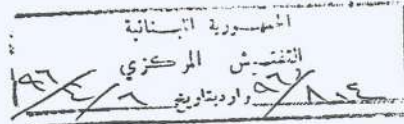 الجمهورية اللبنانية
التفتيش المركزي
٨٠٤/٩٦ وارد بتاريخ ٦/٤/٩٦